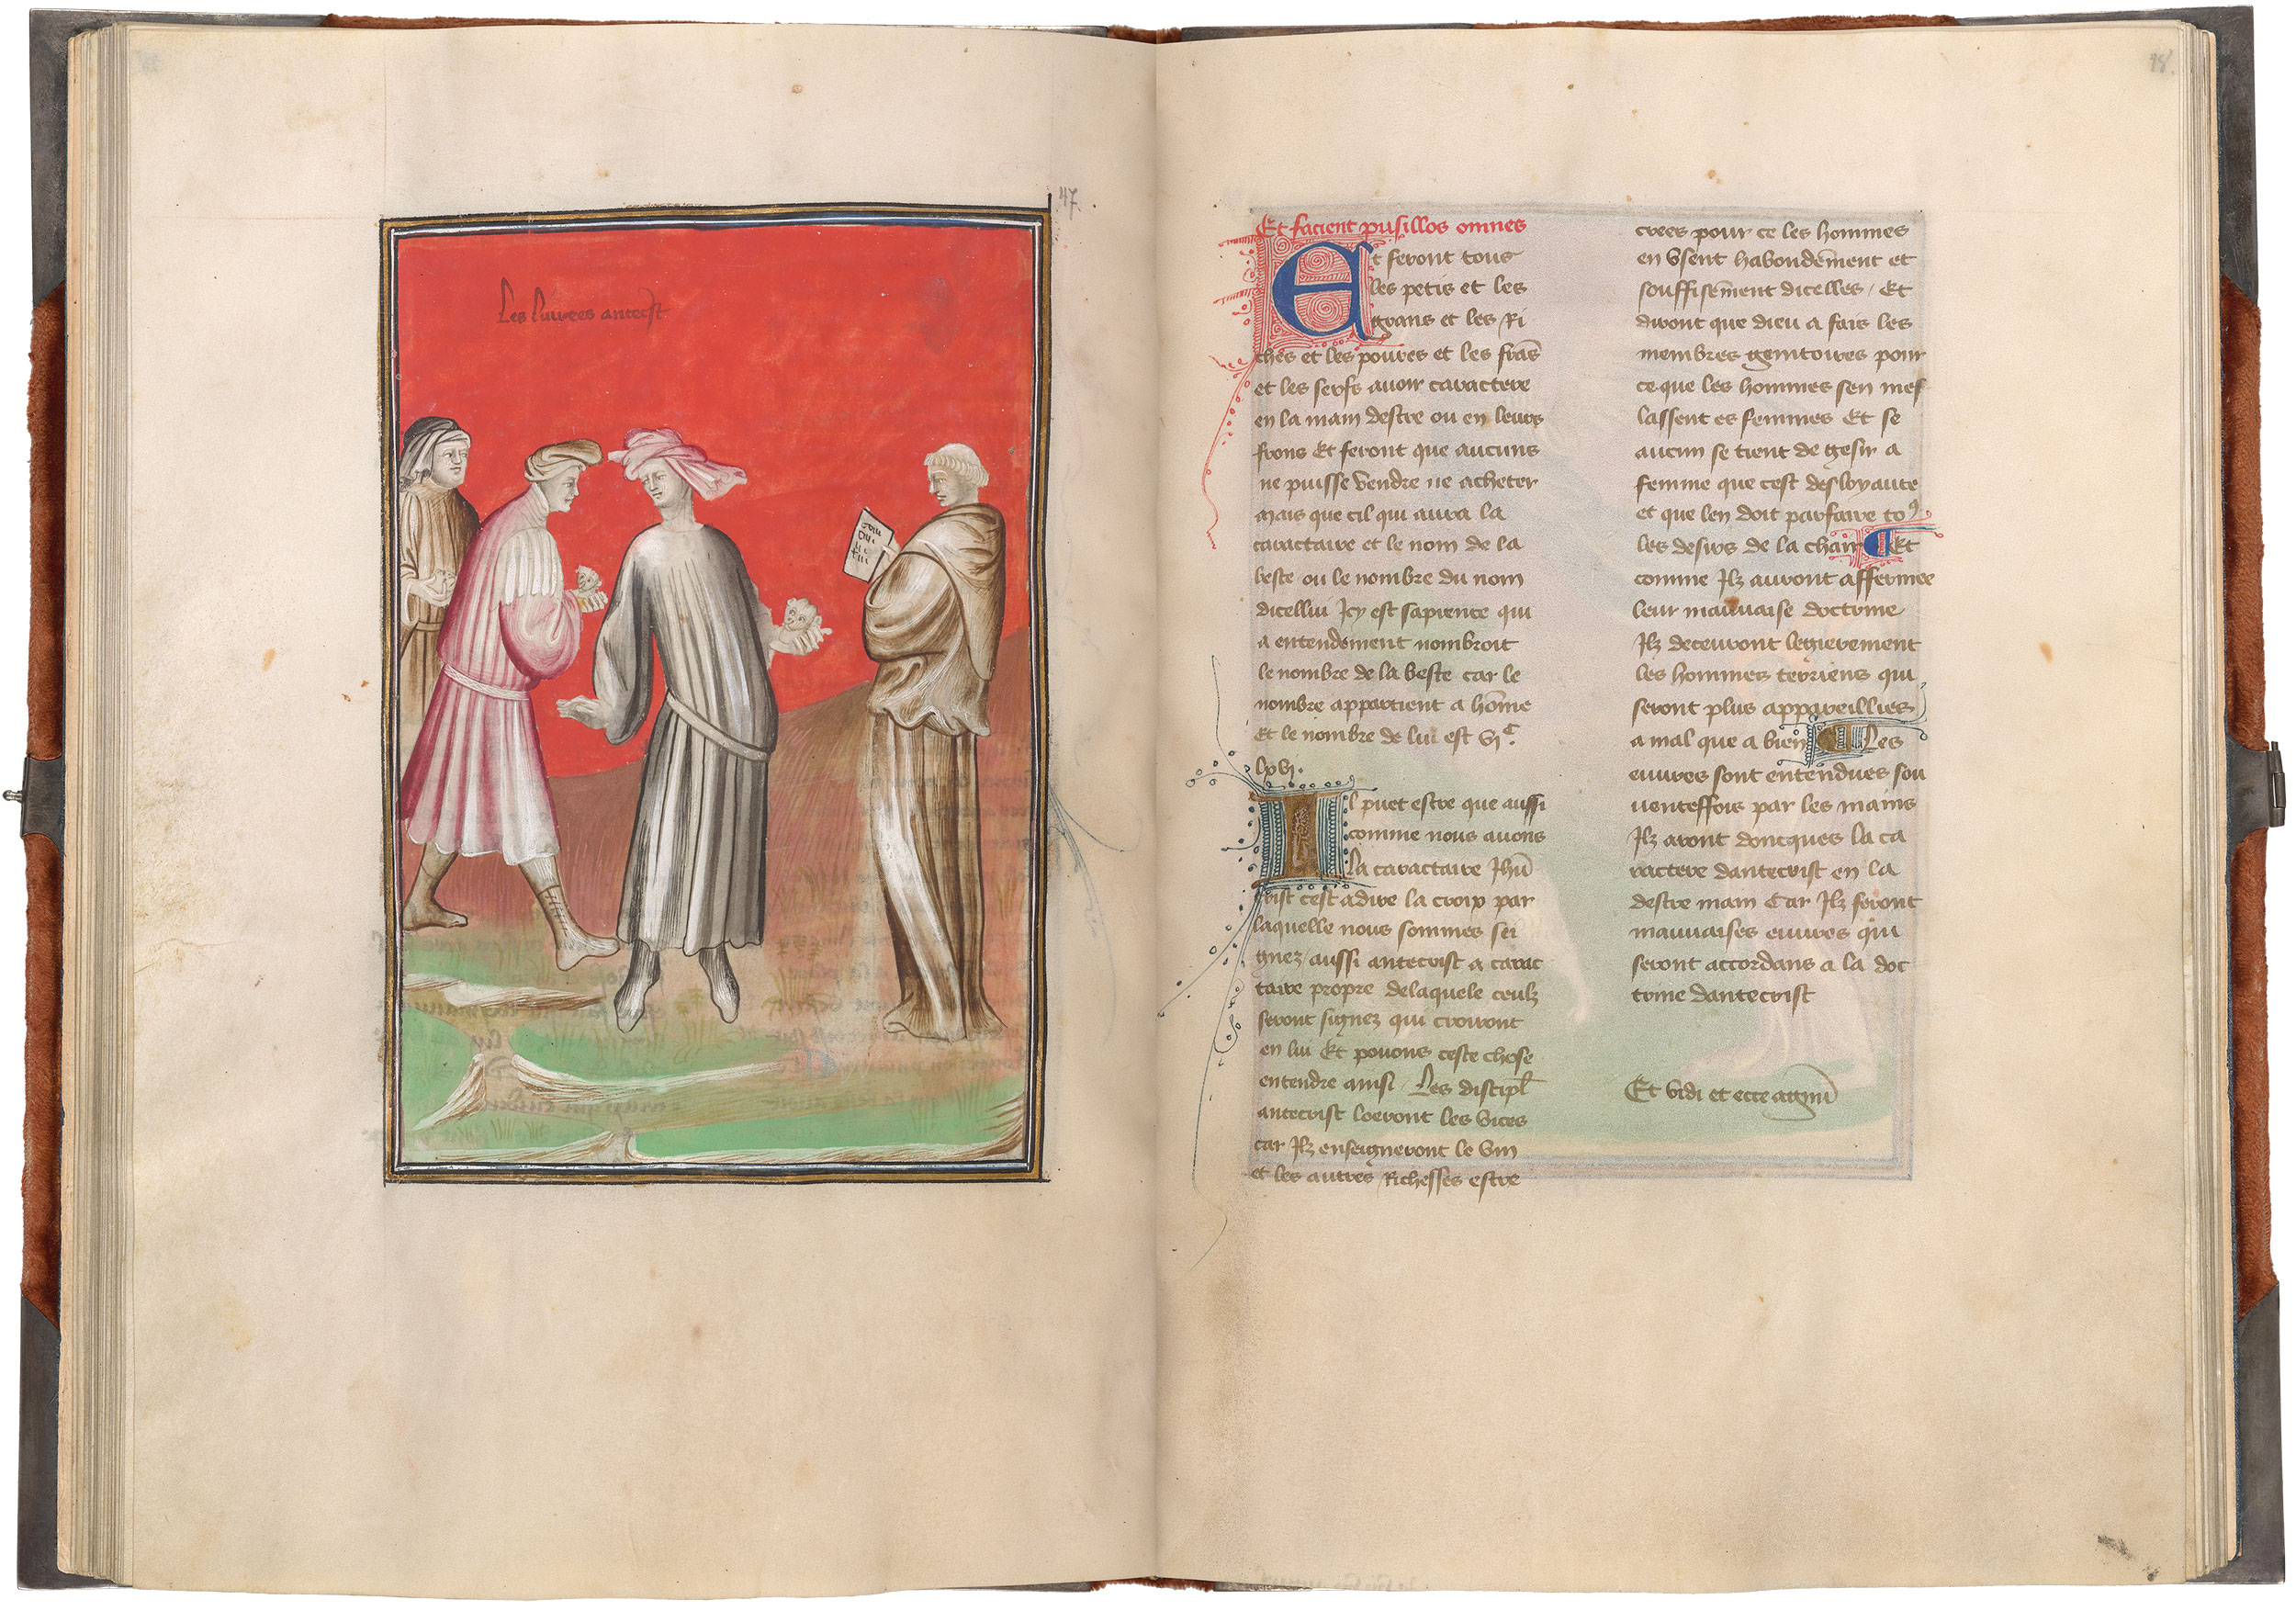 47
Les liures antecst
98
Et facient pusillos omnes
Et feront tous
les petis et les
grans et les Ri
ches et les poures et les frās
et les serfs auoir caractere
en la main destre ou en leurs
frons Et feront que aucuns
ne puisse vendre ne acheter
mais que cil qui aura la
caractaire et le nom de la
beste ou le nombre du nom
dicellui Icy est sapience qui
a entendement nombroit
le nombre de la beste car le
nombre appartient a hōme
Et le nombre de lui est vi c.
lxvi.
Il puet estre que aussi
comme nous auons
la caractaire Jhū
crist cest adire la croix par
laquelle nous sommes sei
gnez / aussi antecrist a carac
taire propre delaquele ceulz
seront signez qui croiront
en lui Et pouons ceste chose
entendre ainsi Les discipl
antecrist loeront les vices
car Ilz enseigneront le vin
et les autres Richesses estre
crees pour ce les hommes
en vsent habondēment et
souffisēment dicelles / Et
diront que dieu a fais les
membres genitoires pour
ce que les hommes sen mes
lassent es femmes Et se
aucun se tient de gesir a
femme que cest desloyaute
et que len doit parfaire to9
les desirs de la chair Et
comme Ilz auront affermee
leur mauuaise doctrine
Ilz deceuront legierement
les hommes terriens qui
seront plus appareillies
a mal que a bien Les
euures sont entendues sou
uenteffois par les mains
Ilz aront doncques la ca
ractere dantecrist en la
destre main Car Ilz feront
mauuaises euures qui
seront accordans a la doc
trine dantecrist
Et vidi et ecce agnū